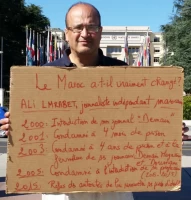 Le Maroc a-t-il vraiment changé?
ALI LMRABET, journaliste indépendant marocain
2000: Interdiction de son journal "Demain"
2001: Condamné à 4 mois de prison
2003: Condamné à 4 ans de prison et à la
fermeture de ses journaux Demain Magazine
2005: Condamné à l'interdiction de
2015: Refus des autorités de lui